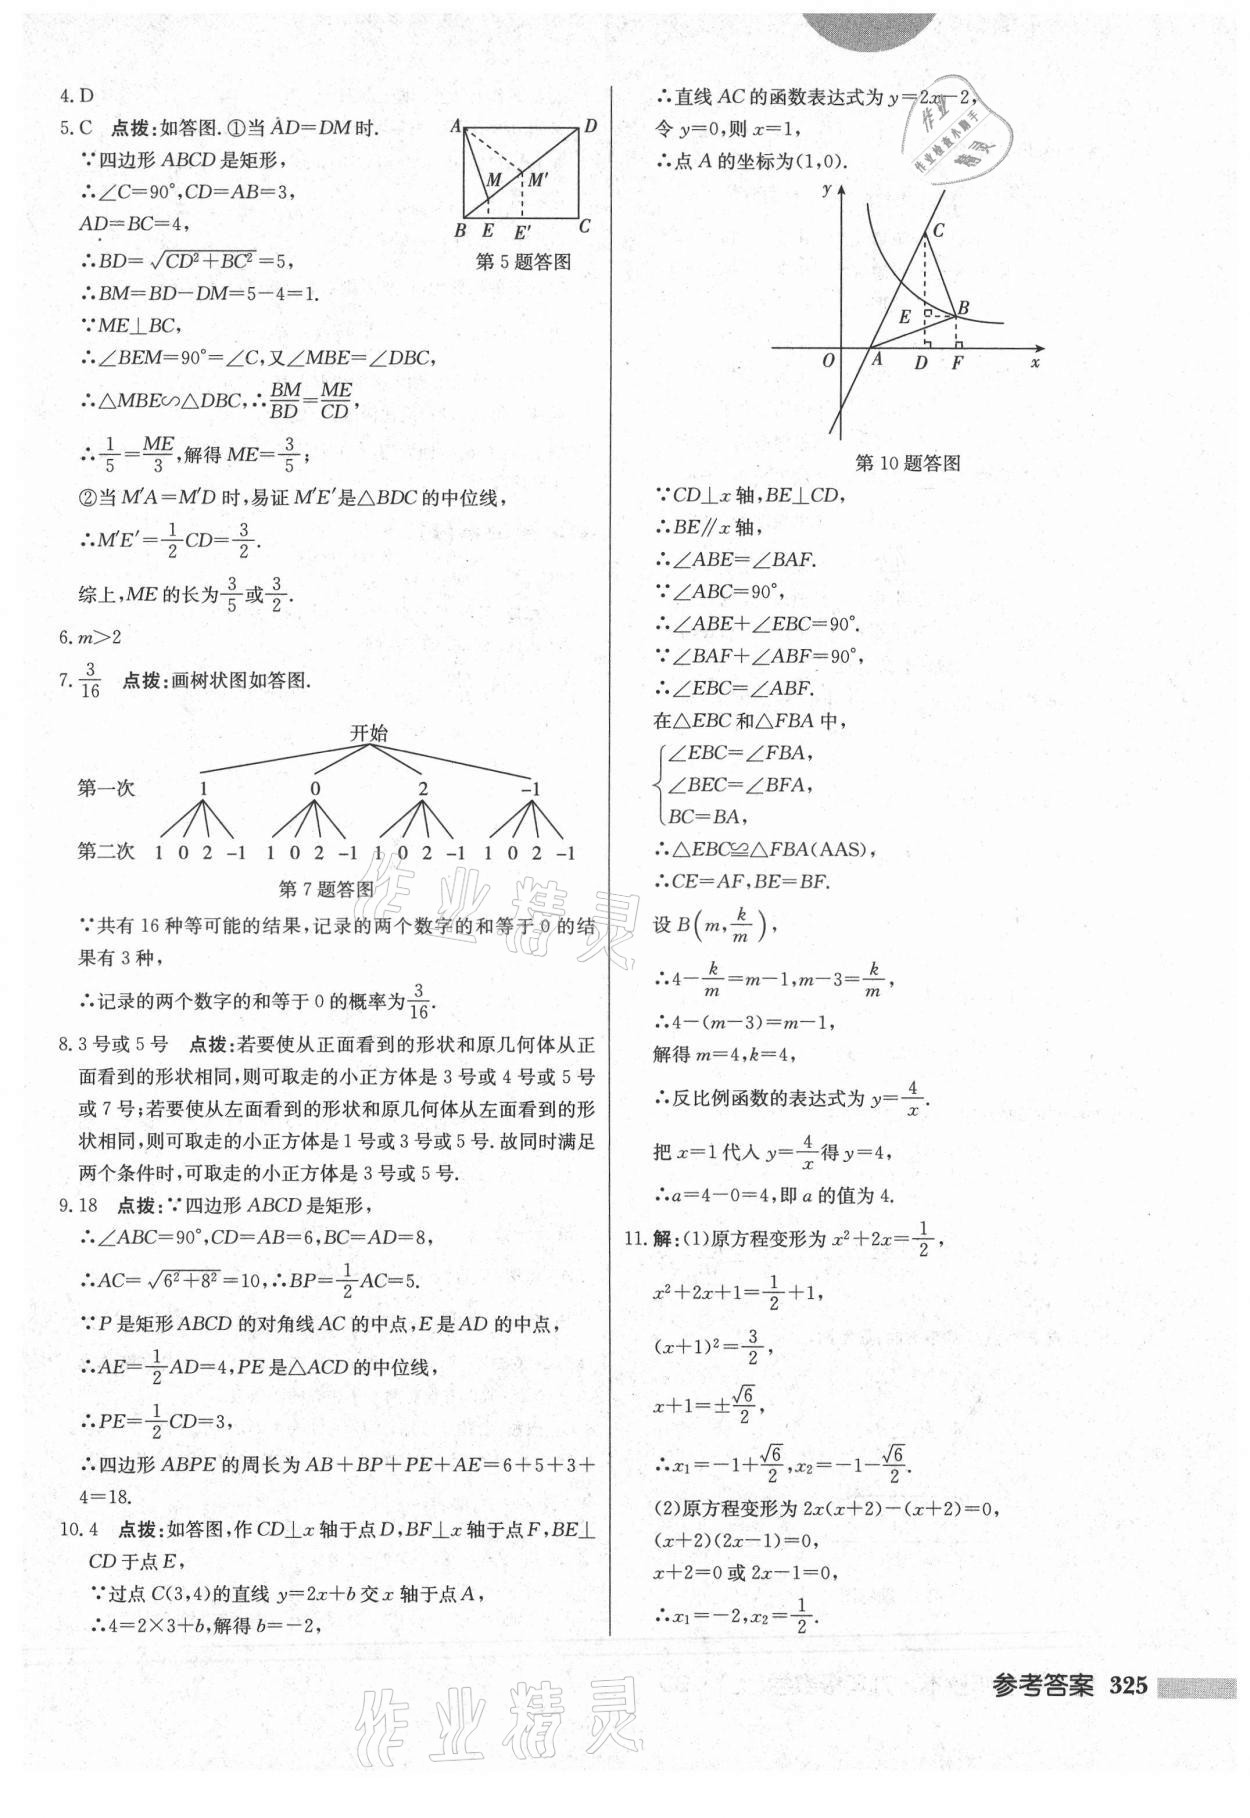 4. D
5. C 点拨:如答图. ①当 AD=DM 时.
∵四边形 ABCD 是矩形,
∴∠C=90°,CD=AB=3,
AD=BC=4,
∴BD=√(CD²+BC²)=5,
∴BM=BD-DM=5-4=1.
∵ME⊥BC,
∴∠BEM=90°=∠C,又∠MBE=∠DBC,
∴△MBE∽△DBC,∴BM/BD=ME/CD,
∴1/5=ME/3,解得 ME=3/5;
②当 M′A=M′D 时,易证 M′E′是△BDC 的中位线,
∴M′E′=1/2CD=3/2.
综上,ME 的长为3/5或3/2.
A D
M M′
B E E′ C
第 5 题答图
6. m>2
7. 3/16 点拨:画树状图如答图.
开始
第一次 1 0 2 -1
第二次 1 0 2 -1 1 0 2 -1 1 0 2 -1 1 0 2 -1
第 7 题答图
∵共有 16 种等可能的结果,记录的两个数字的和等于 0 的结
果有 3 种,
∴记录的两个数字的和等于 0 的概率为3/16.
8. 3 号或 5 号 点拨:若要使从正面看到的形状和原几何体从正
面看到的形状相同,则可取走的小正方体是 3 号或 4 号或 5 号
或 7 号;若要使从左面看到的形状和原几何体从左面看到的形
状相同,则可取走的小正方体是 1 号或 3 号或 5 号. 故同时满足
两个条件时,可取走的小正方体是 3 号或 5 号.
9. 18 点拨:∵四边形 ABCD 是矩形,
∴∠ABC=90°,CD=AB=6,BC=AD=8,
∴AC=√(6²+8²)=10,∴BP=1/2AC=5.
∵P 是矩形 ABCD 的对角线 AC 的中点,E 是 AD 的中点,
∴AE=1/2AD=4,PE 是△ACD 的中位线,
∴PE=1/2CD=3,
∴四边形 ABPE 的周长为 AB+BP+PE+AE=6+5+3+
4=18.
10. 4 点拨:如答图,作 CD⊥x 轴于点 D,BF⊥x 轴于点 F,BE⊥
CD 于点 E,
∵过点 C(3,4)的直线 y=2x+b 交 x 轴于点 A,
∴4=2×3+b,解得 b=-2,
∴直线 AC 的函数表达式为 y=2x-2,
令 y=0,则 x=1,
∴点 A 的坐标为(1,0).
y
C
E B
O A D F x
第 10 题答图
∵CD⊥x 轴,BE⊥CD,
∴BE∥x 轴,
∴∠ABE=∠BAF.
∵∠ABC=90°,
∴∠ABE+∠EBC=90°.
∵∠BAF+∠ABF=90°,
∴∠EBC=∠ABF.
在△EBC 和△FBA 中,
∠EBC=∠FBA,
∠BEC=∠BFA,
BC=BA,
∴△EBC≌△FBA(AAS),
∴CE=AF,BE=BF.
设 B(m,k/m),
∴4-k/m=m-1,m-3=k/m,
∴4-(m-3)=m-1,
解得 m=4,k=4,
∴反比例函数的表达式为 y=4/x.
把 x=1 代入 y=4/x得 y=4,
∴a=4-0=4,即 a 的值为 4.
11. 解:(1)原方程变形为 x²+2x=1/2,
x²+2x+1=1/2+1,
(x+1)²=3/2,
x+1=±√6/2,
∴x₁=-1+√6/2,x₂=-1-√6/2.
(2)原方程变形为 2x(x+2)-(x+2)=0,
(x+2)(2x-1)=0,
x+2=0 或 2x-1=0,
∴x₁=-2,x₂=1/2.
参考答案 325
作业
作业检查小助手
精灵
作业精灵
作业精灵